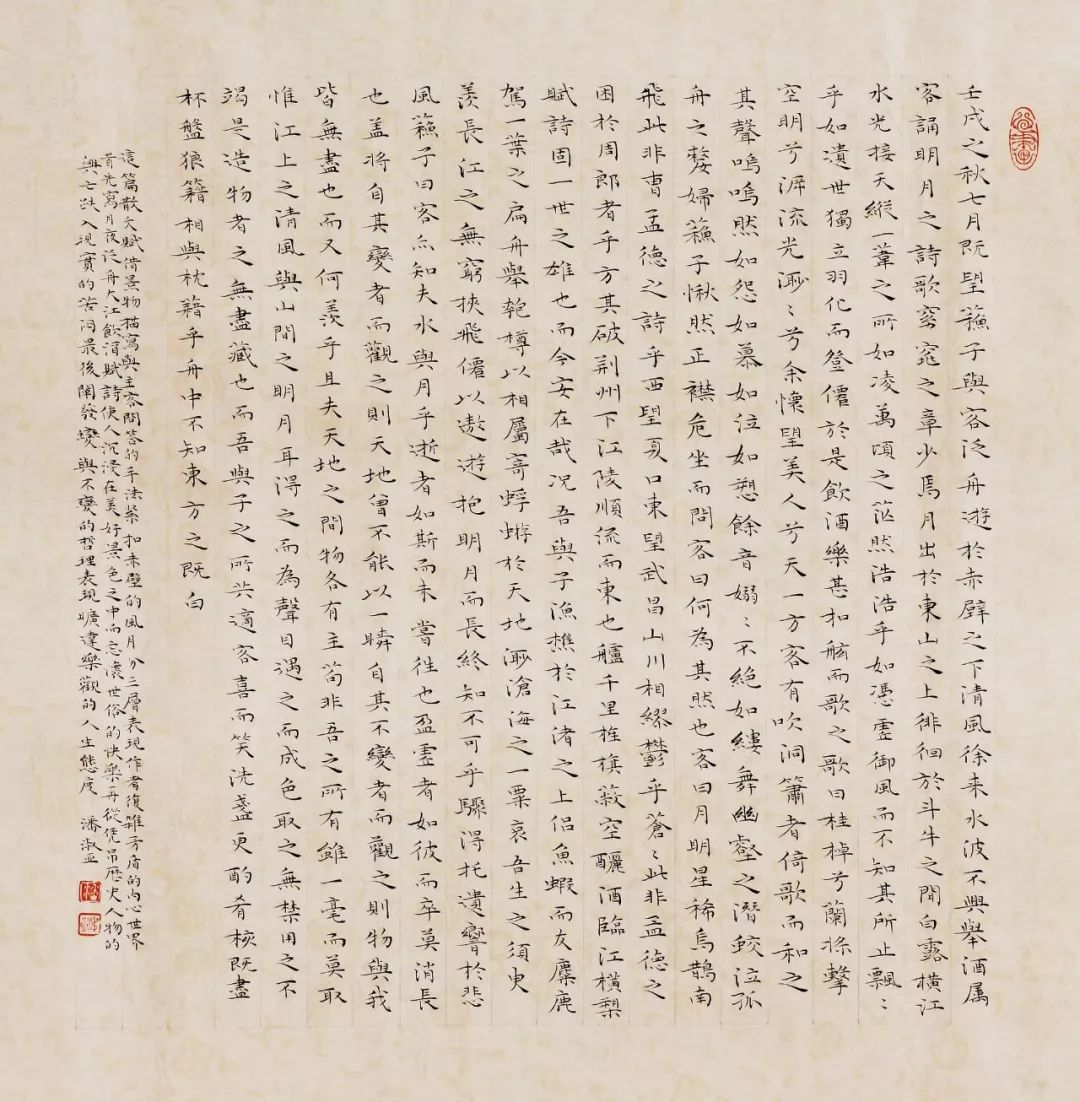 壬戌之秋七月既望蘓子與客泛舟遊於赤壁之下清風徐来水波不興舉酒属
客誦明月之詩歌窈窕之章少焉月出於東山之上徘徊於斗牛之間白露横江
水光接天縱一葦之所如凌萬頃之茫然浩浩乎如憑虚御風而不知其所止飄〻
乎如遺世獨立羽化而登僊於是飲酒樂甚扣舷而歌之歌曰桂棹兮蘭槳擊
空明兮泝流光渺〻兮余懷望美人兮天一方客有吹洞簫者倚歌而和之
其聲嗚嗚然如怨如慕如泣如愬餘音嫋〻不絶如縷舞幽壑之潛蛟泣孤
舟之嫠婦蘓子愀然正襟危坐而問客曰何為其然也客曰月明星稀烏鵲南
飛此非曹孟德之詩乎西望夏口東望武昌山川相繆鬱乎蒼〻此非孟德之
困於周郎者乎方其破荆州下江陵順流而東也艫千里旌旗蔽空釃酒臨江横槊
賦詩固一世之雄也而今安在哉况吾與子漁樵於江渚之上侣魚蝦而友麋鹿
駕一葉之扁舟舉匏樽以相屬寄蜉蝣於天地渺滄海之一粟哀吾生之須臾
羡長江之無窮挾飛僊以遨遊抱明月而長終知不可乎驟得托遺響於悲
風蘓子曰客亦知夫水與月乎逝者如斯而未嘗往也盈虚者如彼而卒莫消長
也盖将自其變者而觀之則天地曾不能以一瞬自其不變者而觀之則物與我
皆無盡也而又何羡乎且夫天地之間物各有主苟非吾之所有雖一毫而莫取
惟江上之清風與山間之明月耳得之而為聲目遇之而成色取之無禁用之不
竭是造物者之無盡藏也而吾與子之所共適客喜而笑洗盞更酌肴核既盡
杯盤狼籍相與枕籍乎舟中不知東方之既白
這篇散文賦借景物描寫與主客問答的手法緊扣赤壁的風月分三層表現作者復雜矛盾的内心世界
首先寫月夜泛舟大江飲酒賦詩使人沉浸在美好景色之中而忘懷世俗的快樂再從凭吊歷史人物的
興亡跌入現實的苦悶最後闡發變與不變的哲理表現曠達樂觀的人生態度 潘淑亚